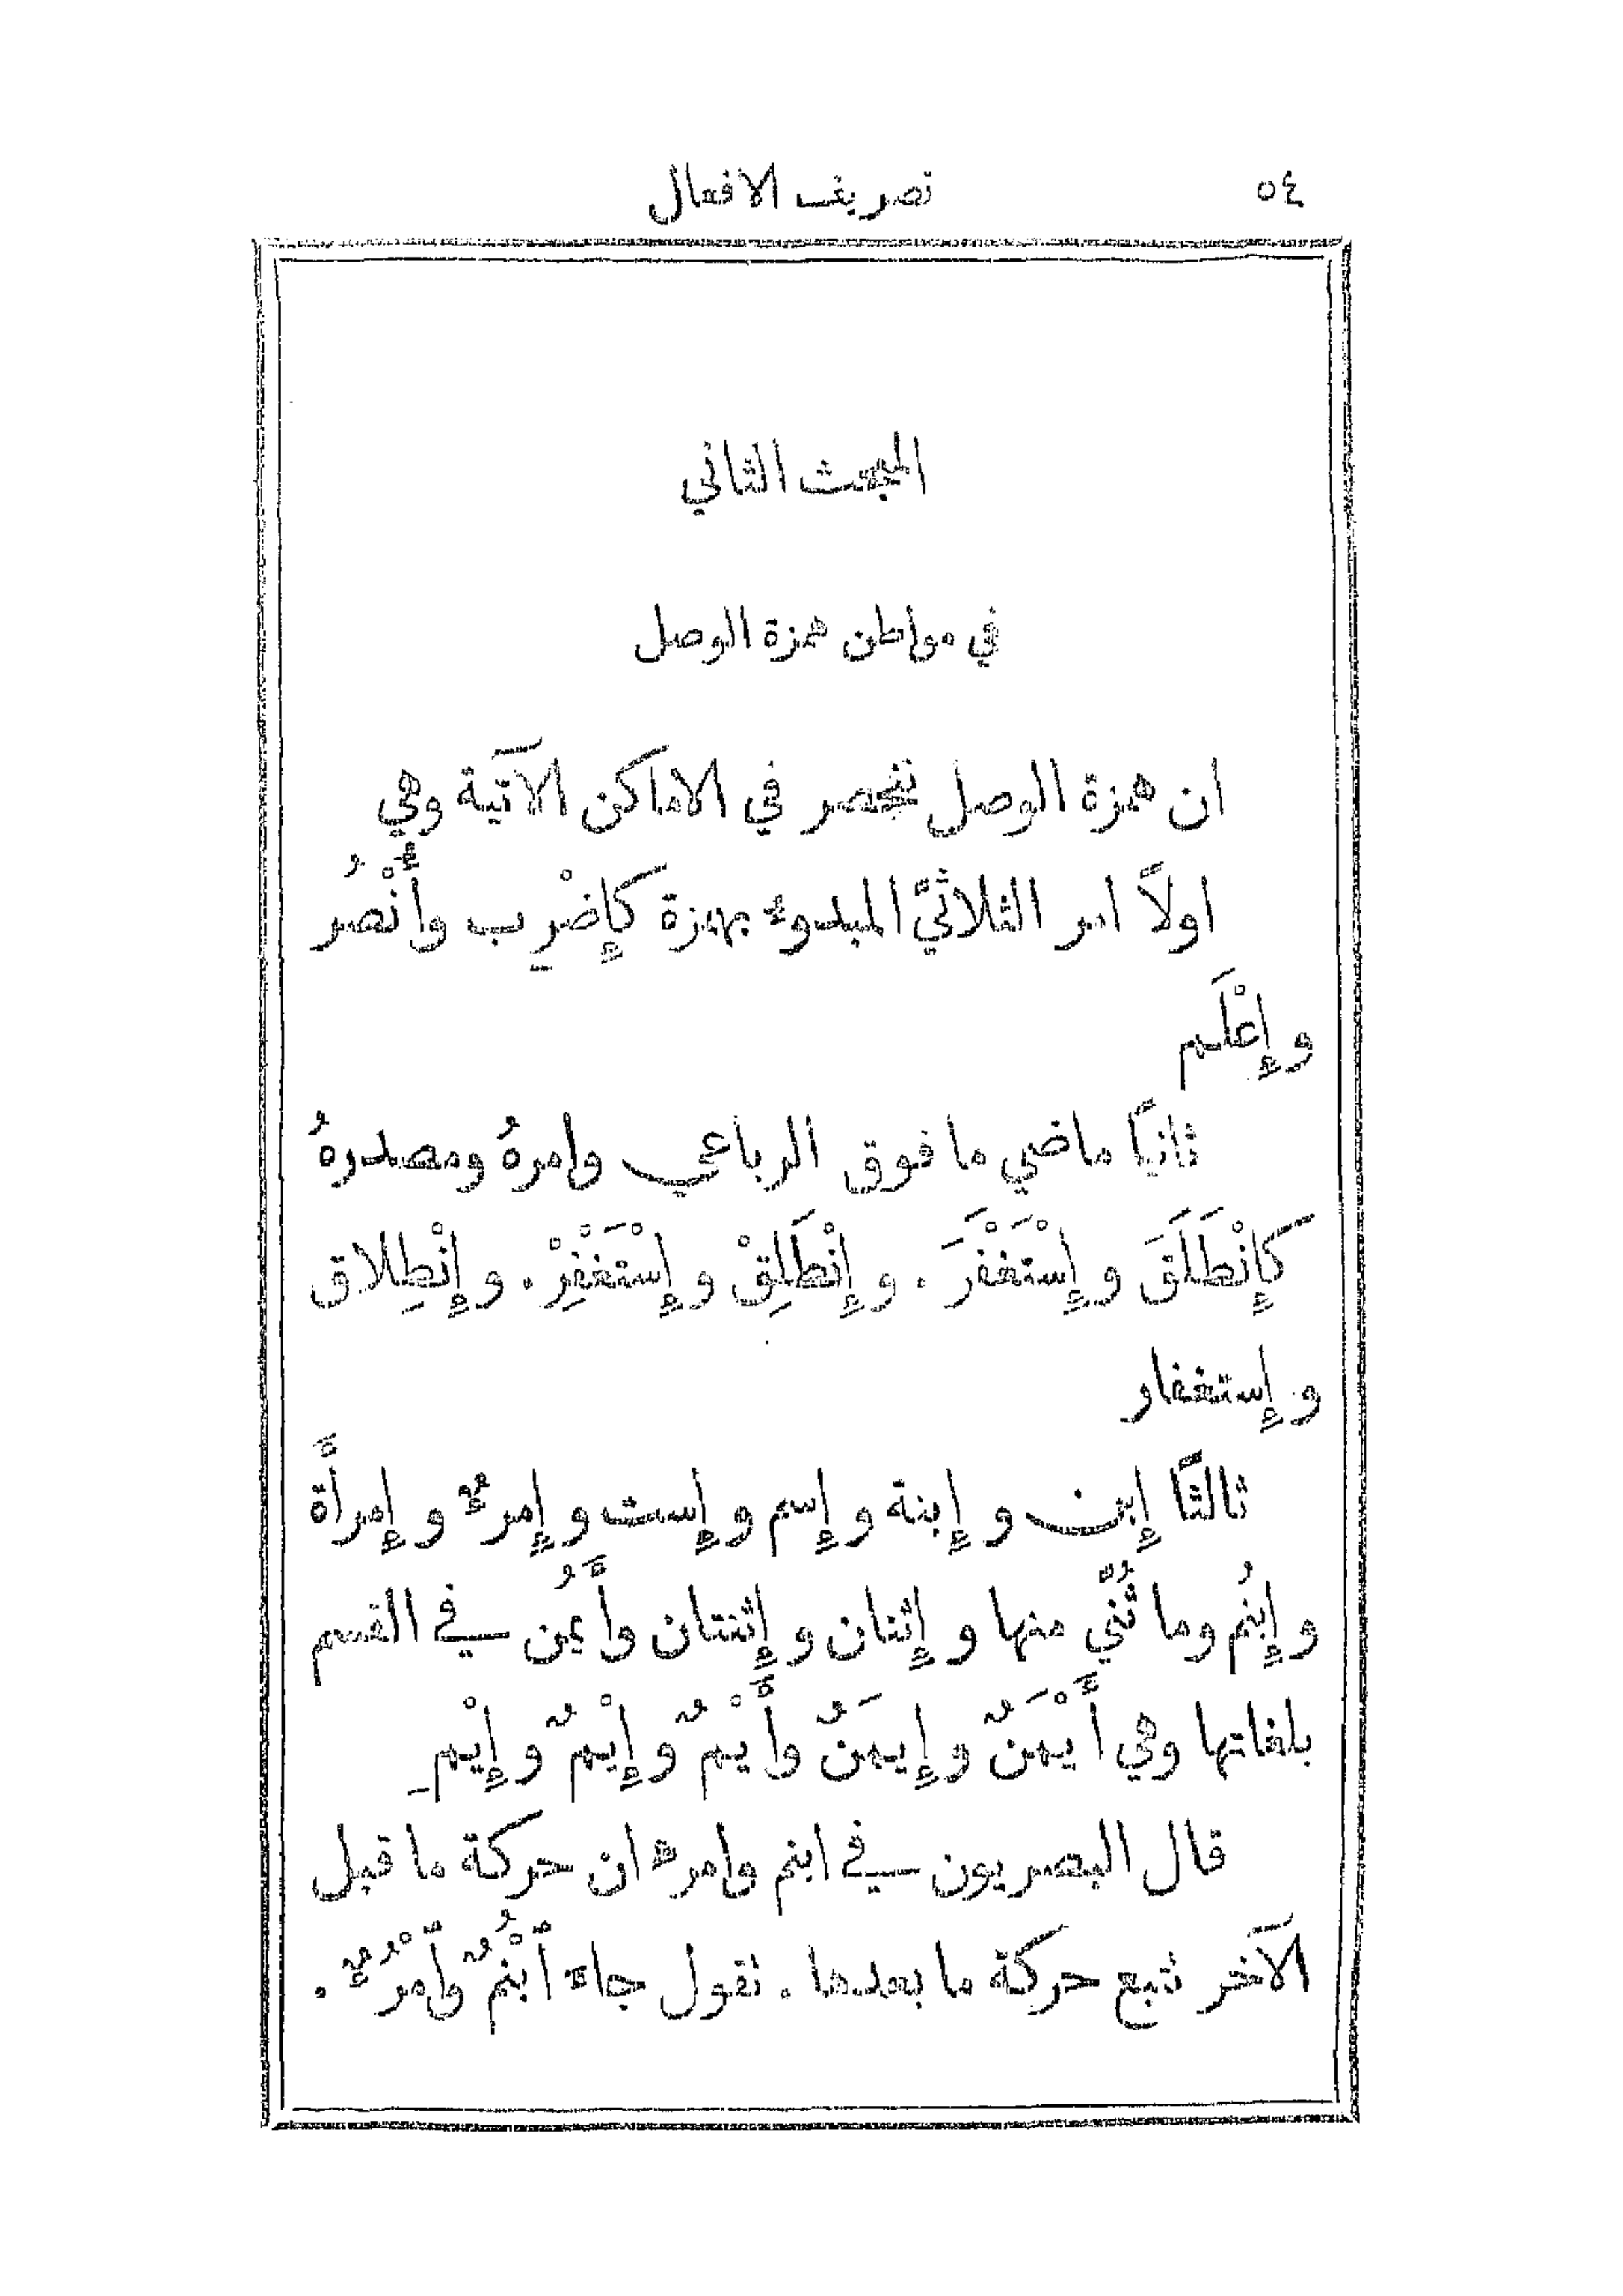 ٥٤
تصريف الافعال
المبحث الثاني
في مواطن همزة الوصل
ان همزة الوصل تنحصر في الاماكن الآتية وهي
اولاً امر الثلاثيّ المبدوء بهمزة كإِضْرِب وأُنْصُر
وإِعْلَم
ثانيًا ماضي ما فوق الرباعي وامرهُ ومصدرهُ
كإِنْطَلَقَ وإِسْتَغْفَرَ . وإِنْطَلِقْ وإِسْتَغْفِرْ . وإِنْطِلاق
وإِستغفار
ثالثًا إِبن وإِبنة وإِسم وإِست وإِمرءٌ وإِمرأَة
وإِبنُم وما ثُنِّي منها وإِثنان وإِثنتان وأَيمُن في القسم
بلغاتها وهي أَيْمَنٌ وإِيمَنٌ وأَيْمٌ وإِيْمٌ وإِيْمِ
قال البصريون في ابنم وامرء ان حركة ما قبل
الآخر تتبع حركة ما بعدها . تقول جاء ٱبْنُمٌ وٱمْرُءٌ .